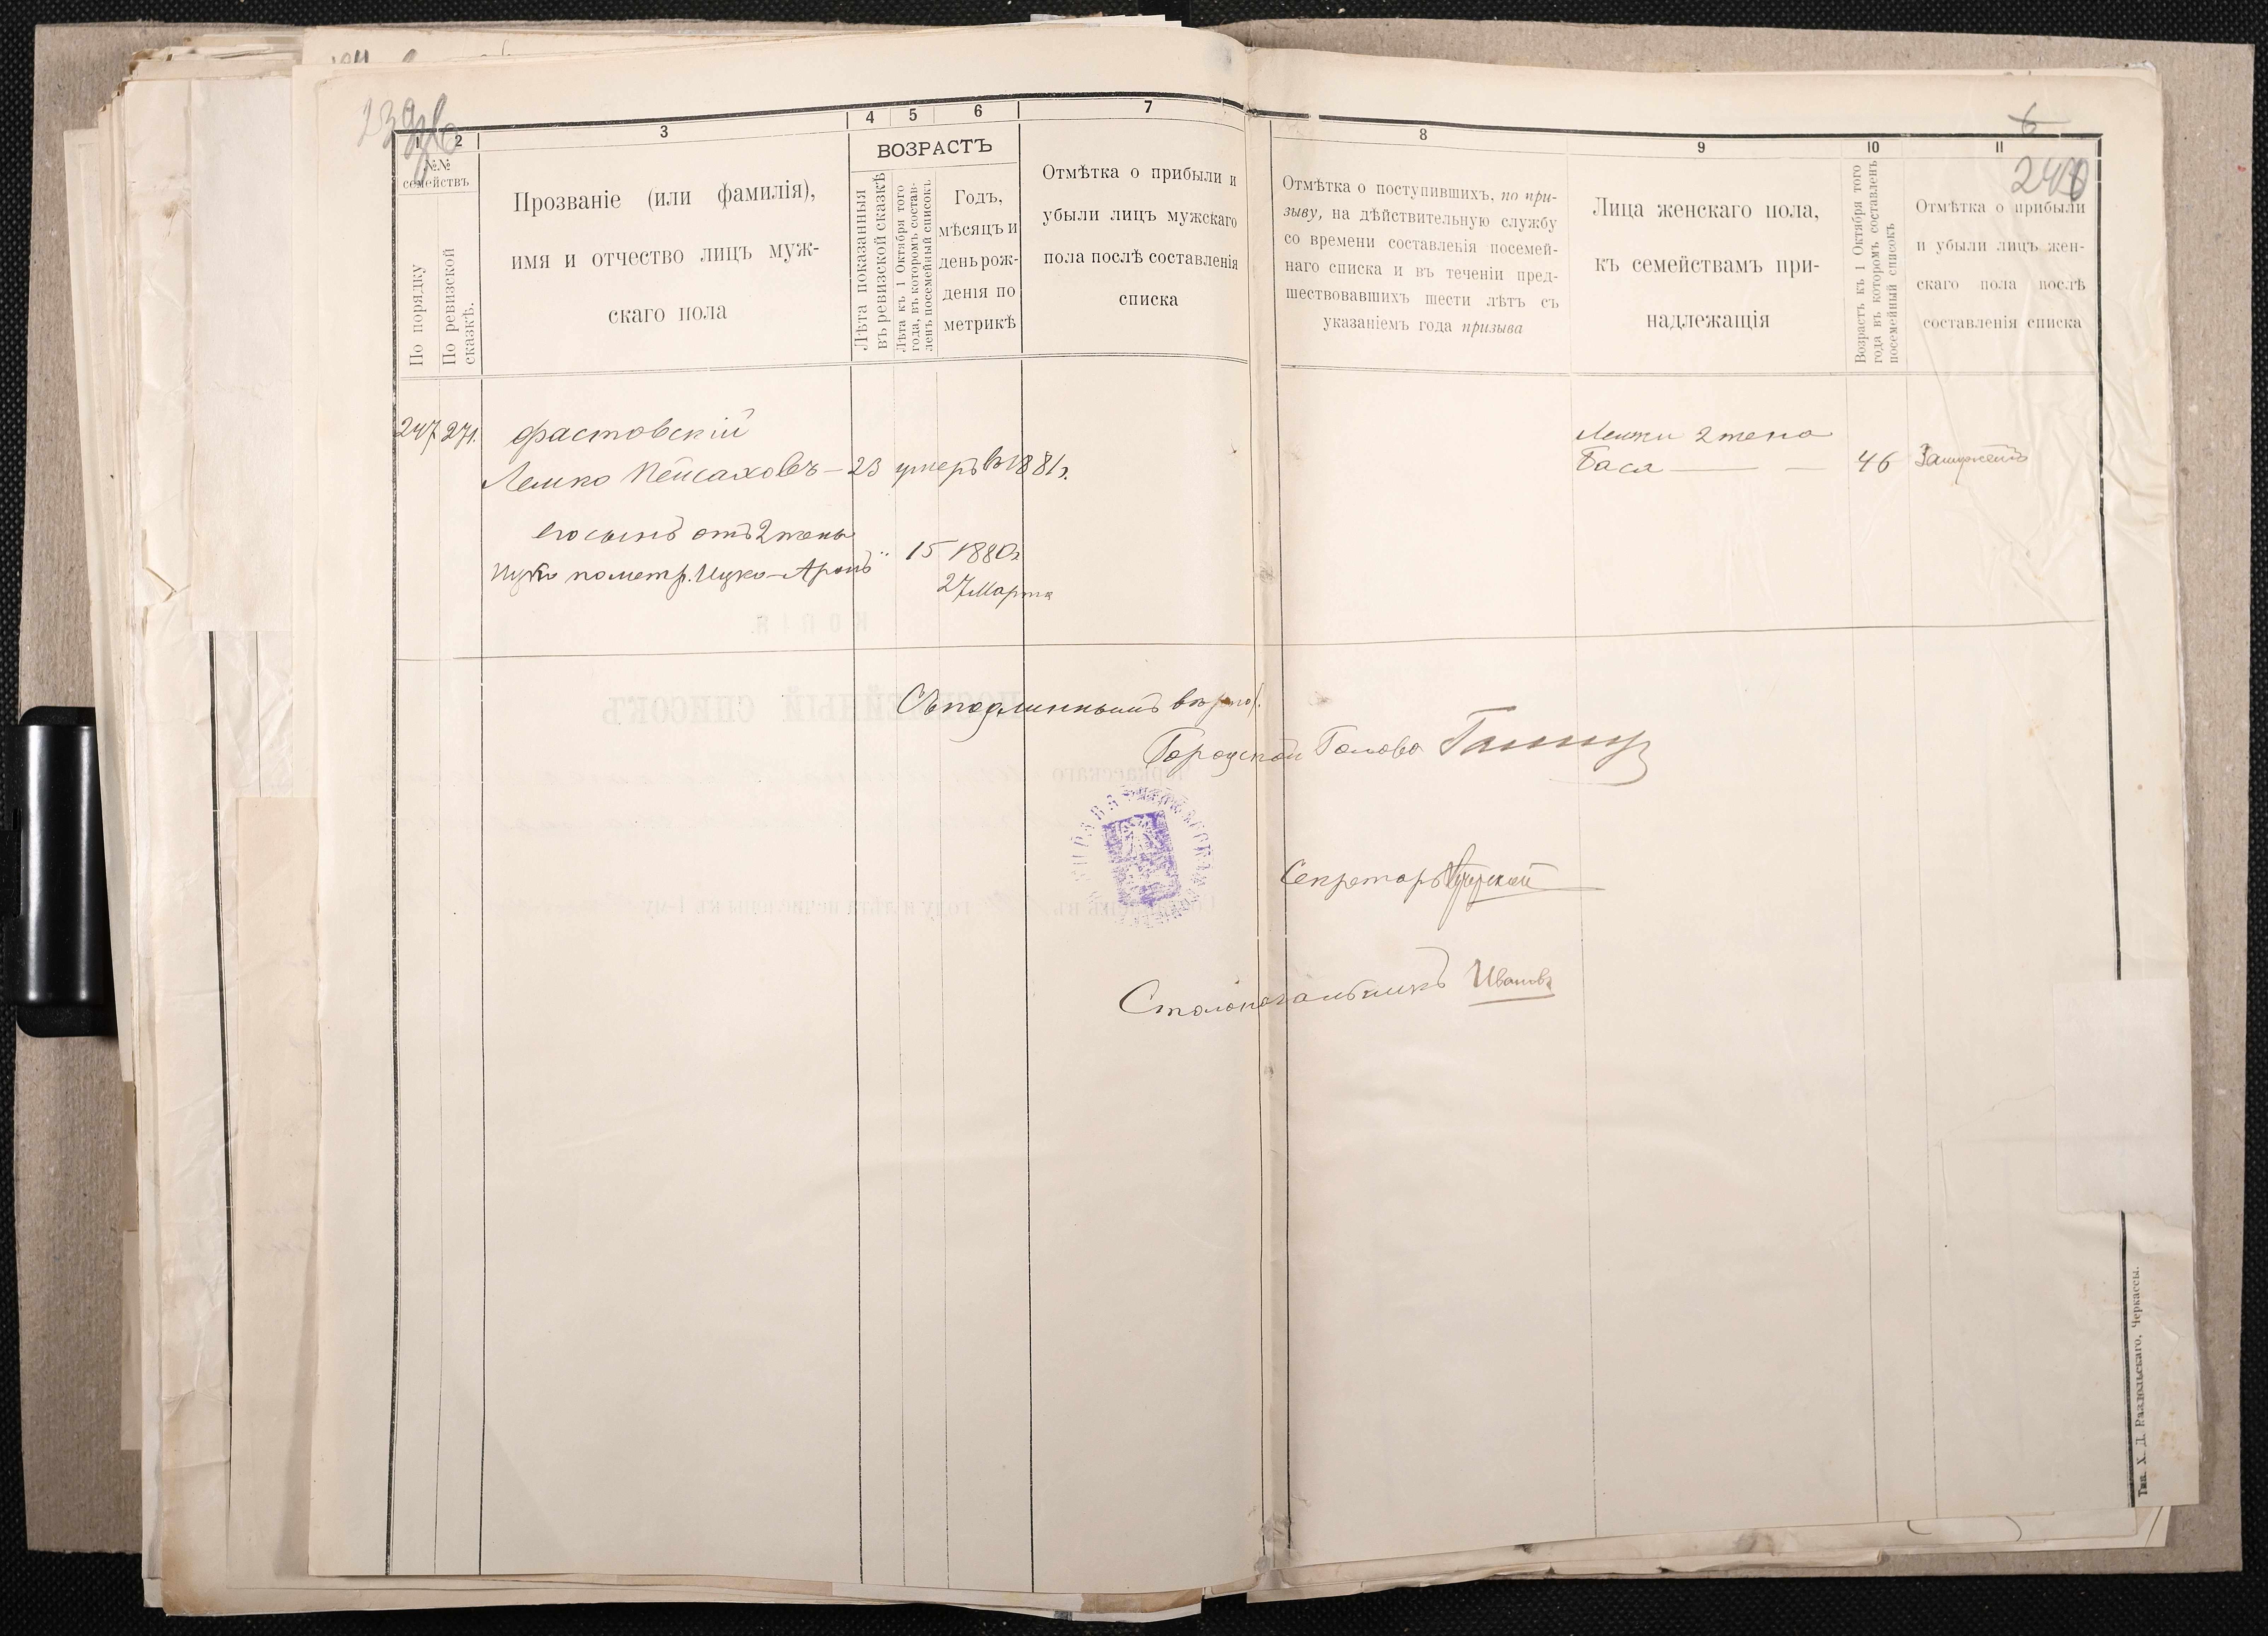 1 2 3 4 5 6 7
№№ семействъ
По порядку
По ревизской сказкѣ.
Прозваніе (или фамилія),
имя и отчество лицъ муж-
скаго пола
ВОЗРАСТЪ
Лѣта показанныя
въ ревизской сказкѣ
Лѣта къ 1 Октября того
года, въ которомъ состав-
ленъ посемейный списокъ
Годъ,
мѣсяцъ и
день рож-
денія по
метрикѣ
Отмѣтка о прибыли и
убыли лицъ мужскаго
пола послѣ составленія
списка
247 271. Фастовскій
Лемко Пейсаховъ — 23 умеръ въ 1881 г.
его сынъ отъ 2 жены
Ицко по метр. Ицко-Аронъ 15 1880 г
27 Марта
6
240
8 9 10 11
Отмѣтка о поступившихъ, по при-
зыву, на дѣйствительную службу
со времени составленія посемей-
наго списка и въ теченіи пред-
шествовавшихъ шести лѣтъ съ
указаніемъ года призыва
Лица женскаго пола,
къ семействамъ при-
надлежащія
Возрастъ къ 1 Октября того
года въ которомъ составленъ
посемейный списокъ
Отмѣтка о прибыли
и убыли лицъ жен-
скаго пола послѣ
составленія списка
Лемки 2 жена
Бася — — 46 Замужемъ
Съ подлиннымъ вѣрно:
Городской Голова
Секретарь
Столоначальникъ Ивановъ
Тип. Х. Д. Раздольскаго, Черкассы.